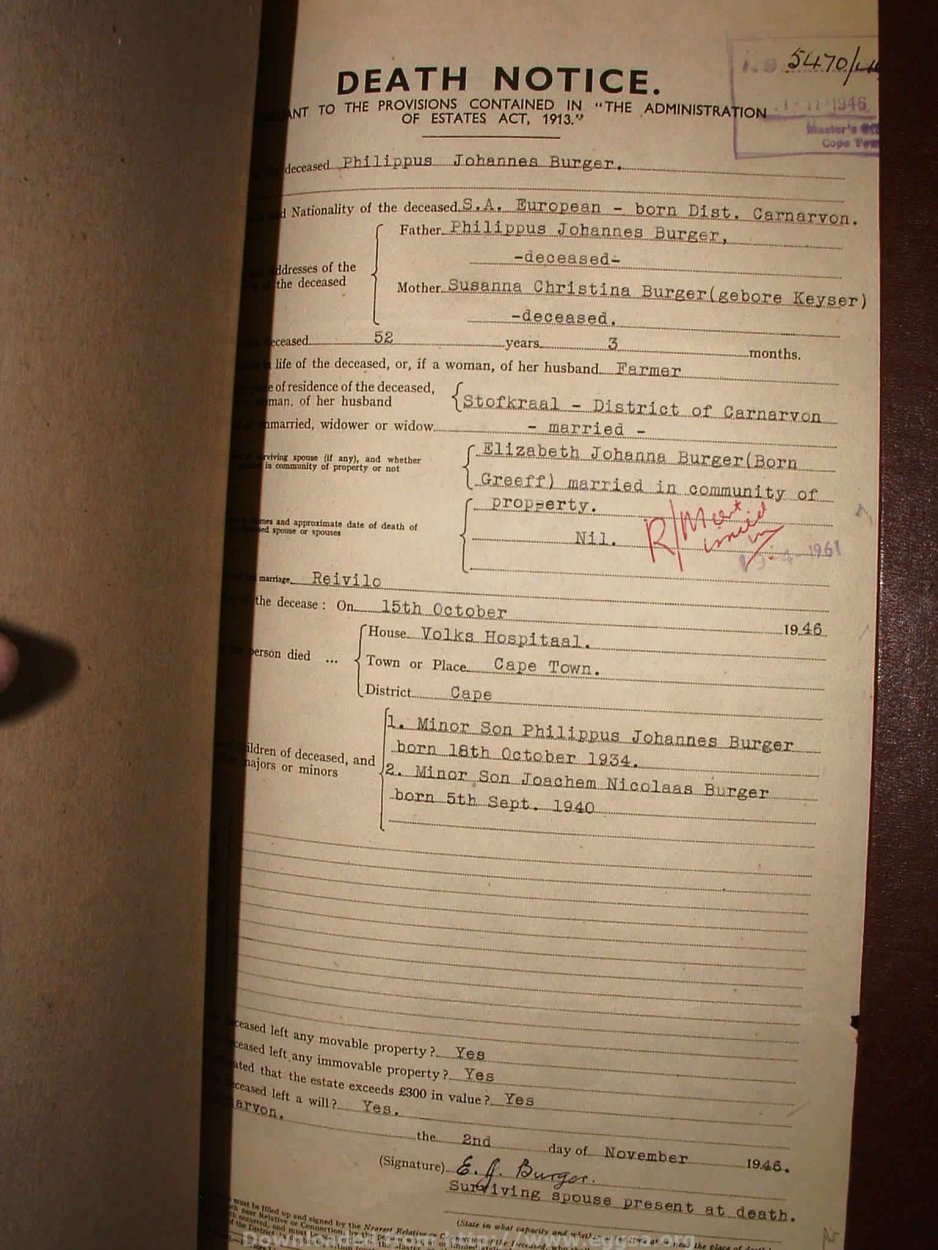 5470/46
1946
Master's
Cape
DEATH NOTICE.
TO THE PROVISIONS CONTAINED IN "THE ADMINISTRATION
OF ESTATES ACT, 1913."
deceased Philippus Johannes Burger.
Nationality of the deceased S.A. European - born Dist. Carnarvon.
Father Philippus Johannes Burger,
-deceased-
of the
the deceased
Mother Susanna Christina Burger(gebore Keyser)
-deceased.
52 years 3 months.
life of the deceased, or, if a woman, of her husband Farmer
of residence of the deceased,
of her husband
Stofkraal - District of Carnarvon
widower or widow - married -
spouse (if any), and whether
in community of property or not
Elizabeth Johanna Burger(Born
Greeff) married in community of
property.
and approximate date of death of
spouse or spouses
Nil.
1961
marriage Reivilo
the decease: On 15th October 1946
person died ...
House Volks Hospitaal.
Town or Place Cape Town.
District Cape
of deceased, and
majors or minors
1. Minor Son Philippus Johannes Burger
born 18th October 1934.
2. Minor Son Joachem Nicolaas Burger
born 5th Sept. 1940
left any movable property? Yes
left any immovable property? Yes
that the estate exceeds £300 in value? Yes
left a will? Yes.
the 2nd day of November 1946.
(Signature) E. J. Burger.
Surviving spouse present at death.
must be filled up and signed by the Nearest Relative or
near Relative or Connection,
(State in what capacity and
Downloaded from http://www.eggsa.org